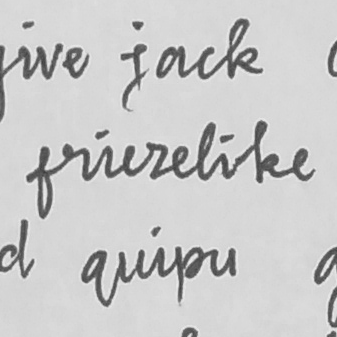 give jack
friezelike
quipu